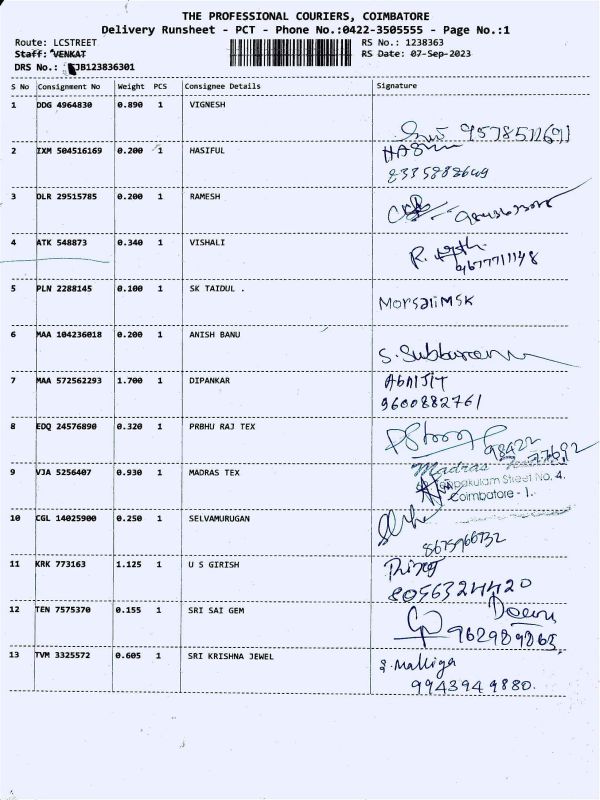 THE PROFESSIONAL COURIERS, COIMBATORE
Delivery Runsheet - PCT - Phone No.:0422-3505555 - Page No.:1
Route: LCSTREET RS No.: 1238363
Staff: VENKAT RS Date: 07-Sep-2023
DRS No.: JB123836301
S No Consignment No Weight PCS Consignee Details Signature
1 DDG 4964830 0.890 1 VIGNESH
9578511691
2 IXM 504516169 0.200 1 HASIFUL
8335888649
3 DLR 29515785 0.200 1 RAMESH
4 ATK 548873 0.340 1 VISHALI
9677711148
5 PLN 2288145 0.100 1 SK TAIDUL .
Morsalim SK
6 MAA 104236018 0.200 1 ANISH BANU
S. Subburam
7 MAA 572562293 1.700 1 DIPANKAR ABHIJIT
9600882761
8 EDQ 24576890 0.320 1 PRBHU RAJ TEX
98422
77692
9 VJA 5256407 0.930 1 MADRAS TEX Madras
Street No. 4.
Coimbatore - 1.
10 CGL 14025900 0.250 1 SELVAMURUGAN
8675966732
11 KRK 773163 1.125 1 U S GIRISH
8056324420
12 TEN 7575370 0.155 1 SRI SAI GEM
962989865
13 TVM 3325572 0.605 1 SRI KRISHNA JEWEL S. Malliga
9943949880.